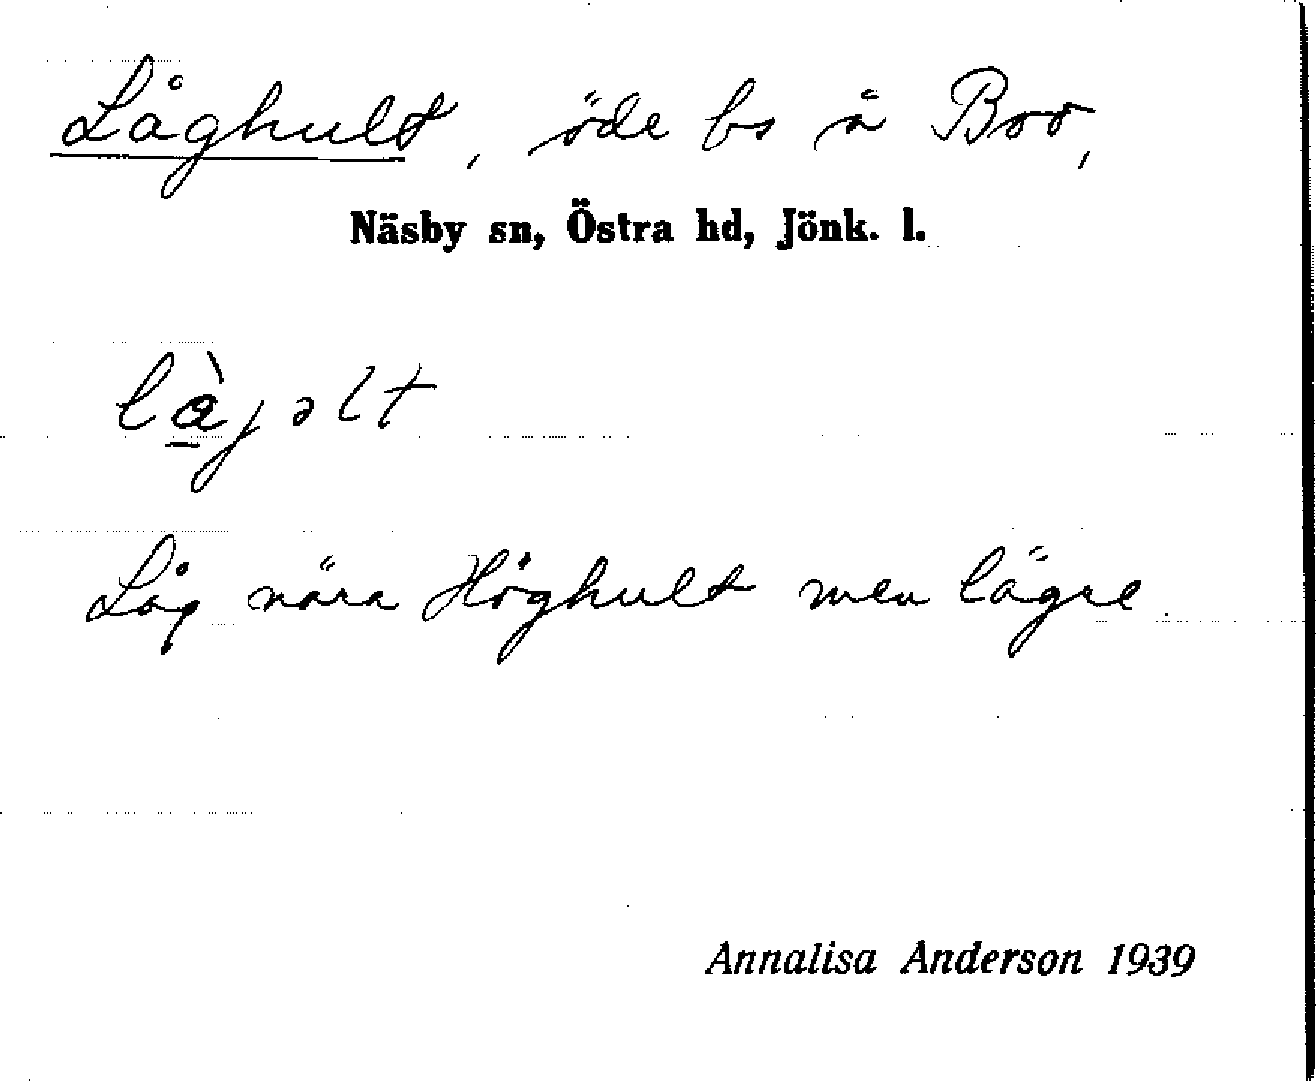 Låghult, öde bs å Boo,
Näsby sn, Östra hd, Jönk. l.
là̱jəlt
Låg nära Höghult men lägre
Annalisa Anderson 1939